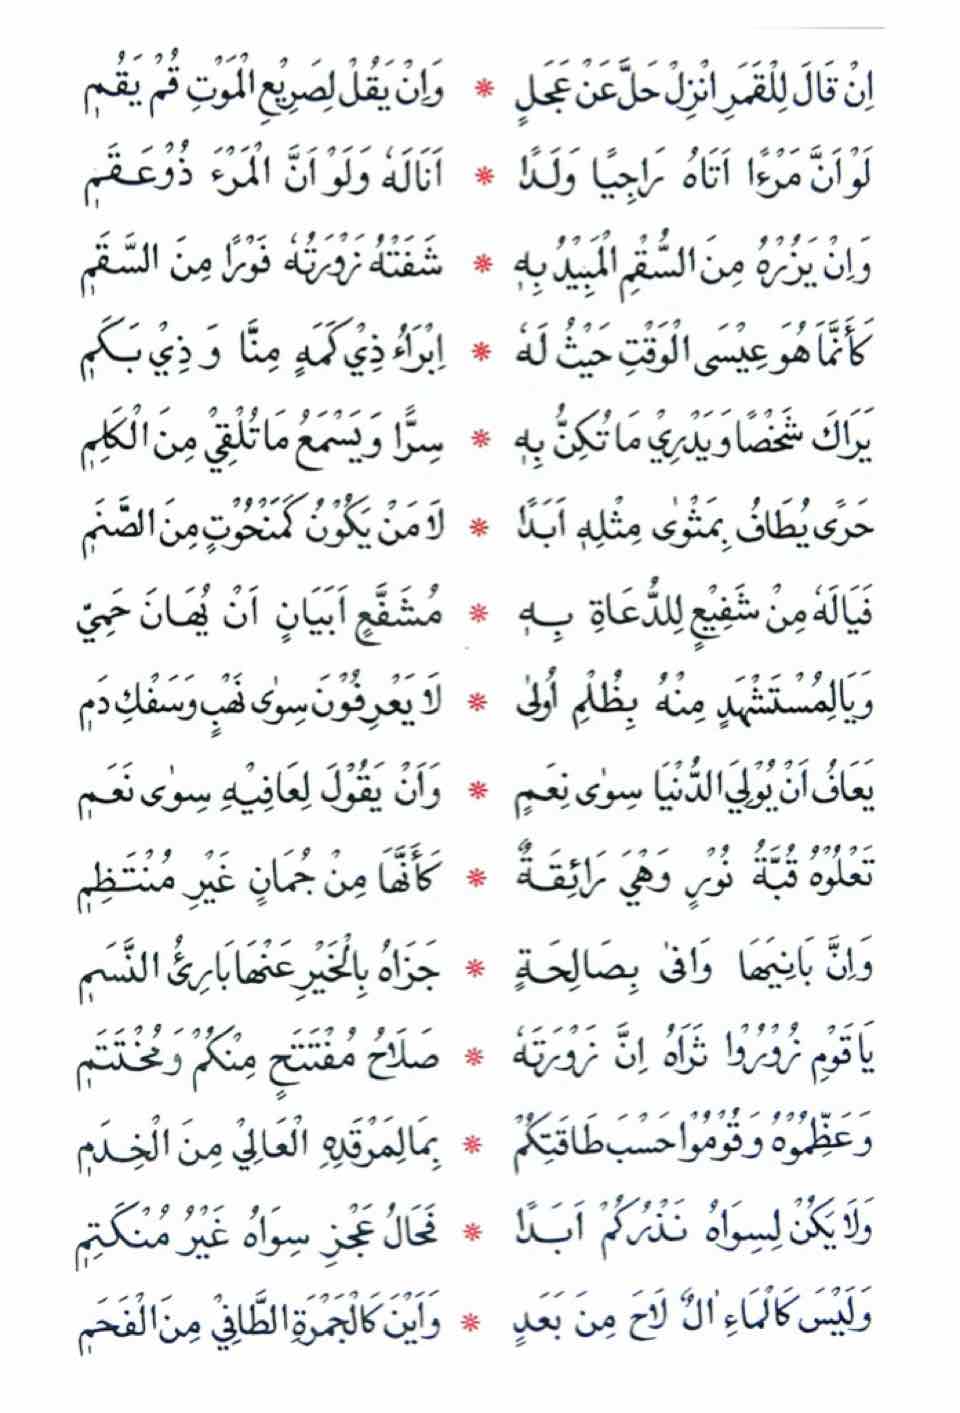 اِنْ قَالَ لِلْقَمَرِ انْزِلْ حَلَّ عَنْ عَجَلٍ * وَاِنْ يَقُلْ لِصَرِيْعِ الْمَوْتِ قُمْ يَقُمِ
لَوْ اَنَّ مَرْءًا اَتَاهُ رَاجِيًا وَلَدًا * اَنَالَهٗ وَلَوْ اَنَّ الْمَرْءَ ذُوْ عَقَمِ
وَاِنْ يَزُرْهُ مِنَ السُّقْمِ الْمُبِيْدُ بِهٖ * شَفَتْهُ زَوْرَتُهٗ فَوْرًا مِنَ السَّقَمِ
كَأَنَّمَا هُوَ عِيْسَى الْوَقْتِ حَيْثُ لَهٗ * اِبْرَاءُ ذِيْ كَمَهٍ مِنَّا وَ ذِيْ بَكَمِ
يَرَاكَ شَخْصًا وَيَدْرِيْ مَا تُكِنُّ بِهٖ * سِرًّا وَيَسْمَعُ مَا تُلْقِيْ مِنَ الْكَلِمِ
حَرًى يُطَافُ بِمَثْوٰى مِثْلِهٖ اَبَدًا * لَا مَنْ يَكُوْنُ كَمَنْحُوْتٍ مِنَ الصَّنَمِ
فَيَالَهٗ مِنْ شَفِيْعٍ لِلدُّعَاةِ بِهٖ * مُشَفَّعٍ اَبَيَانٍ اَنْ يُهَانَ حَمِيّ
وَيَالِمُسْتَشْهَدٍ مِنْهُ بِظُلْمِ اُولٰى * لَا يَعْرِفُوْنَ سِوٰى نَهْبٍ وَسَفْكِ دَمِ
يَعَافُ اَنْ يُوْلِيَ الدُّنْيَا سِوٰى نِعَمٍ * وَاَنْ يَقُوْلَ لِعَافِيْهِ سِوٰى نَعَمِ
تَعْلُوْهُ قُبَّةُ نُوْرٍ وَهْيَ رَائِقَةٌ * كَأَنَّهَا مِنْ جُمَانٍ غَيْرِ مُنْتَظِمِ
وَاِنَّ بَانِيَهَا وَافٰى بِصَالِحَةٍ * جَزَاهُ بِالْخَيْرِ عَنْهَا بَارِئُ النَّسَمِ
يَا قَوْمِ زُوْرُوْا ثَرَاهُ اِنَّ زَوْرَتَهٗ * صَلَاحُ مُفْتَتَحٍ مِنْكُمْ وَمُخْتَتَمِ
وَعَظِّمُوْهُ وَقُوْمُوْا حَسْبَ طَاقَتِكُمْ * بِمَا لِمَرْقَدِهِ الْعَالِيْ مِنَ الْخِدَمِ
وَلَا يَكُنْ لِسِوَاهُ نَذْرُكُمْ اَبَدًا * فَحَالُ عَجْزِ سِوَاهُ غَيْرُ مُنْكَتِمِ
وَلَيْسَ كَالْمَاءِ اٰلٌ لَاحَ مِنَ بَعَدٍ * وَاَيْنَ كَالْجَمْرَةِ الطَّافِيْ مِنَ الْفَحَمِ